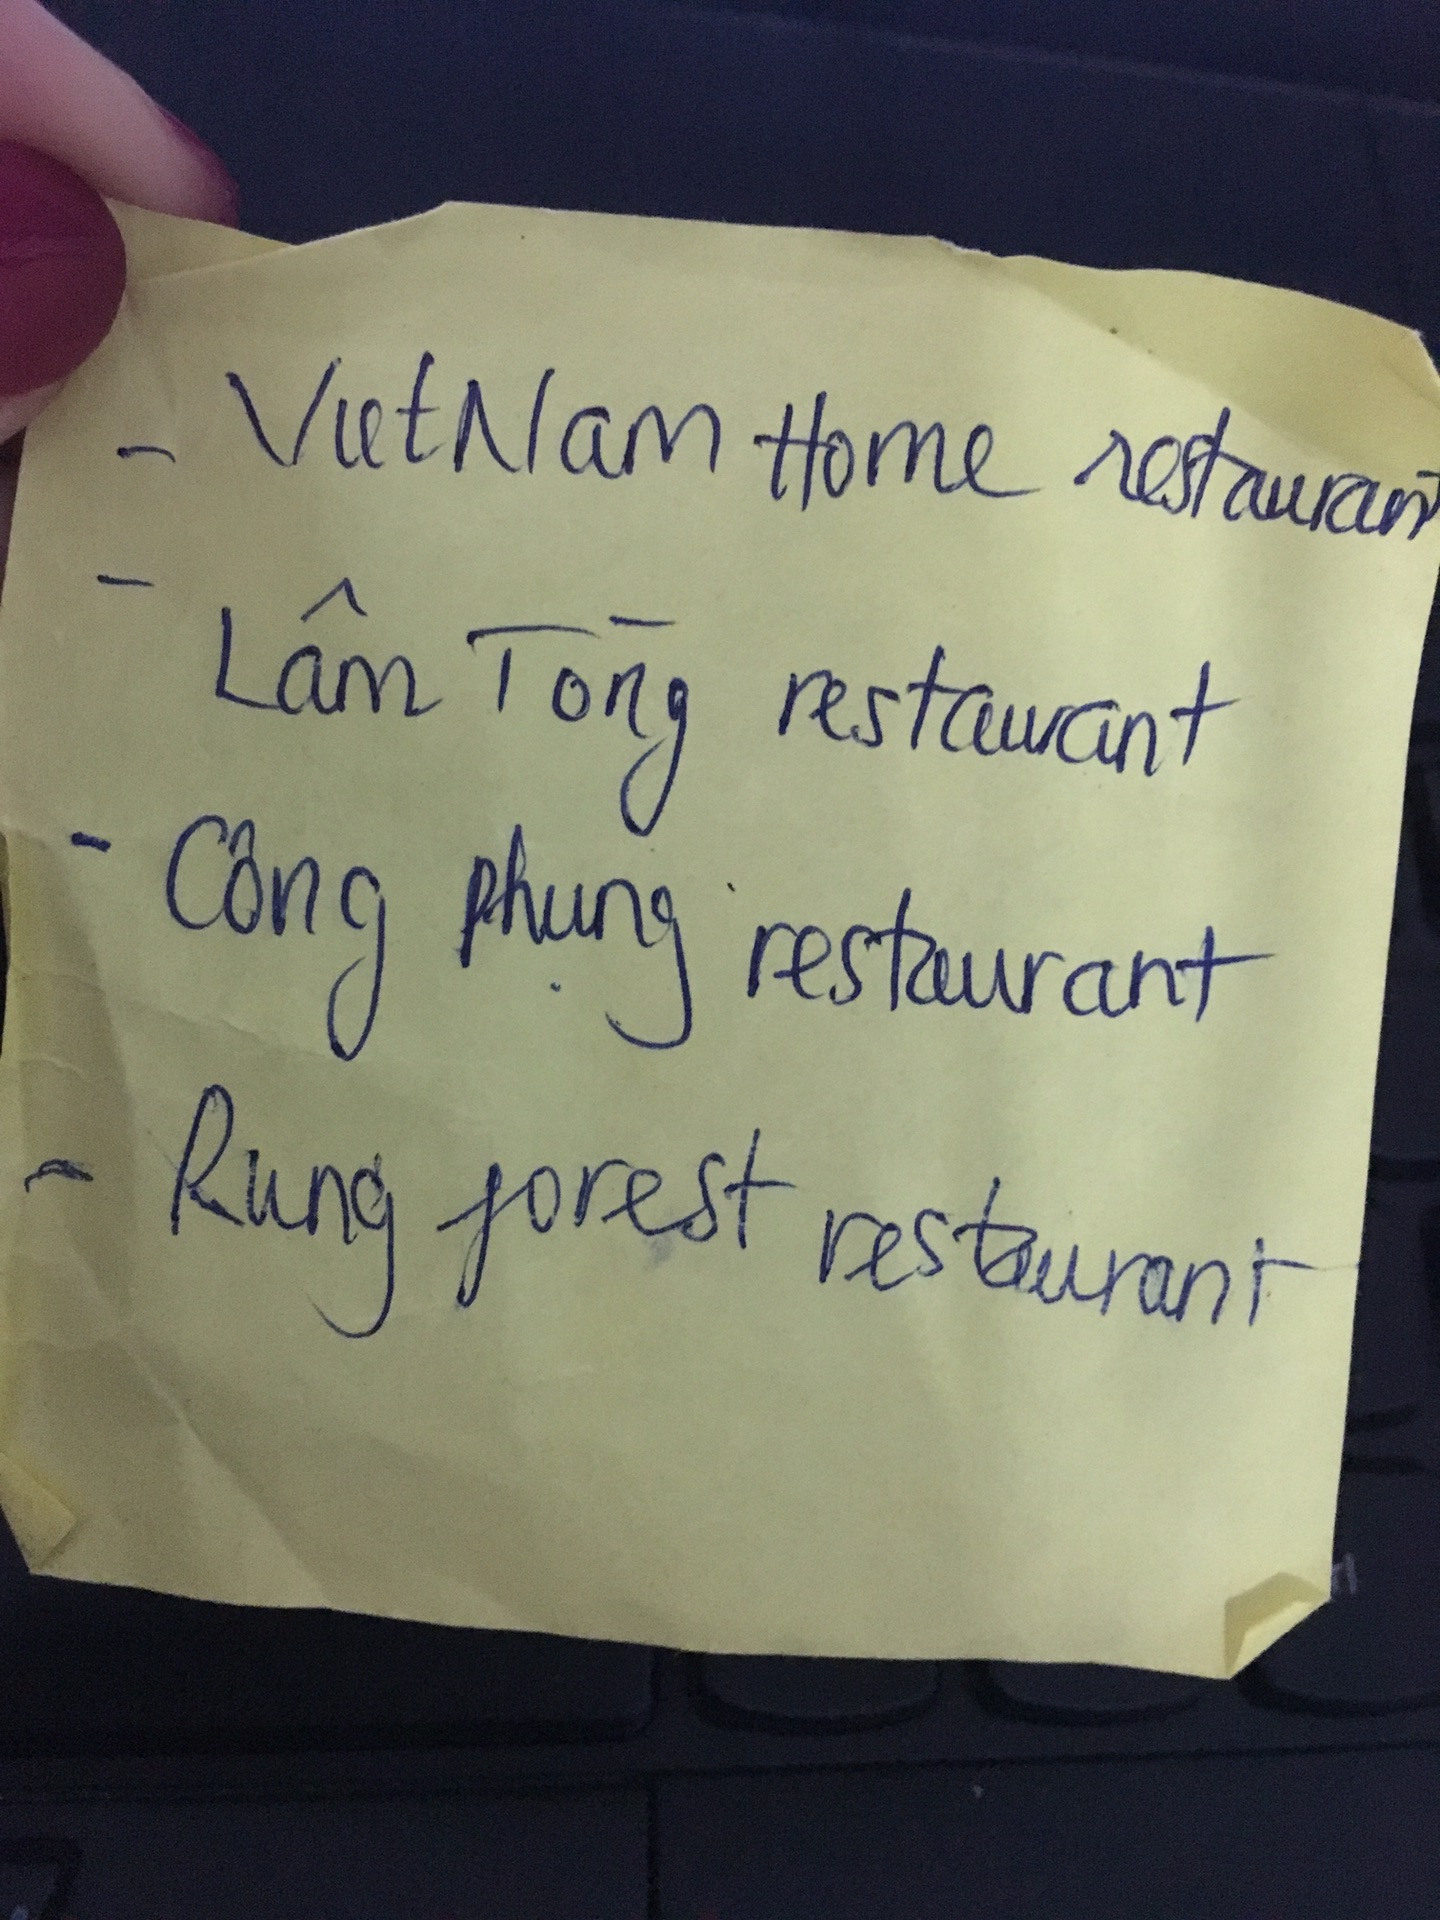 - VietNam Home restaurant
- Lâm Tòng restaurant
- Công phụng restaurant
- Rung forest restaurant